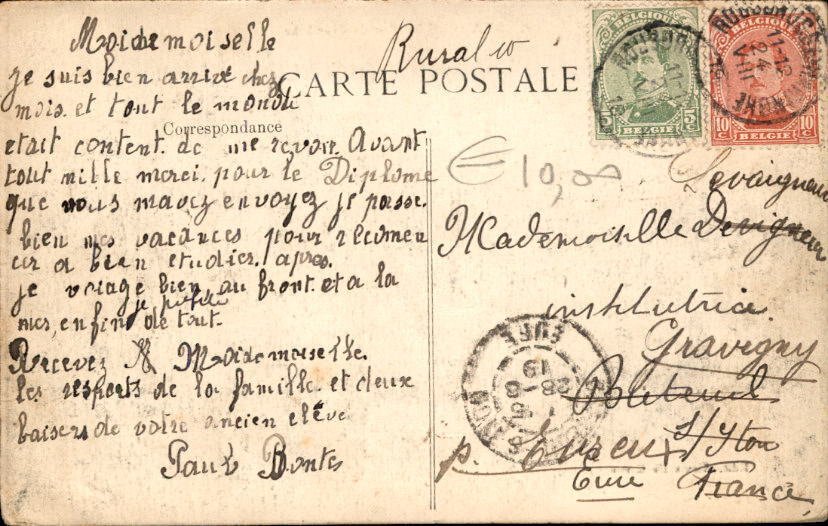 Moidemoiselle
je suis bien arrivé chez
mois. et tout le monde
etait content de me revoir Avant
tout mille merci pour le Diplome
que vous mavez envoyez je passe.
bien mes vacances pour recomen
cer a bien etudier apres.
je voiage bien au front. et a la
mer, enfin je profite de tout.
Recevez M Moidemoiselle.
les respects de la famille et deux
baisers de votre ancien elève
Paul Bontes
Rural 10
CARTE POSTALE
Correspondance
BELGIQUE
5 c 5 c
BELGIË
BELGIQUE
11-12
24
VIII
10 c 10 c
BELGIË
€ 10,00
Levaigneur
Mademoiselle Devigneur
institutrice
Gravigny
Breteuil
s/Iton
p. Evreux
Eure France
EURE
28
19